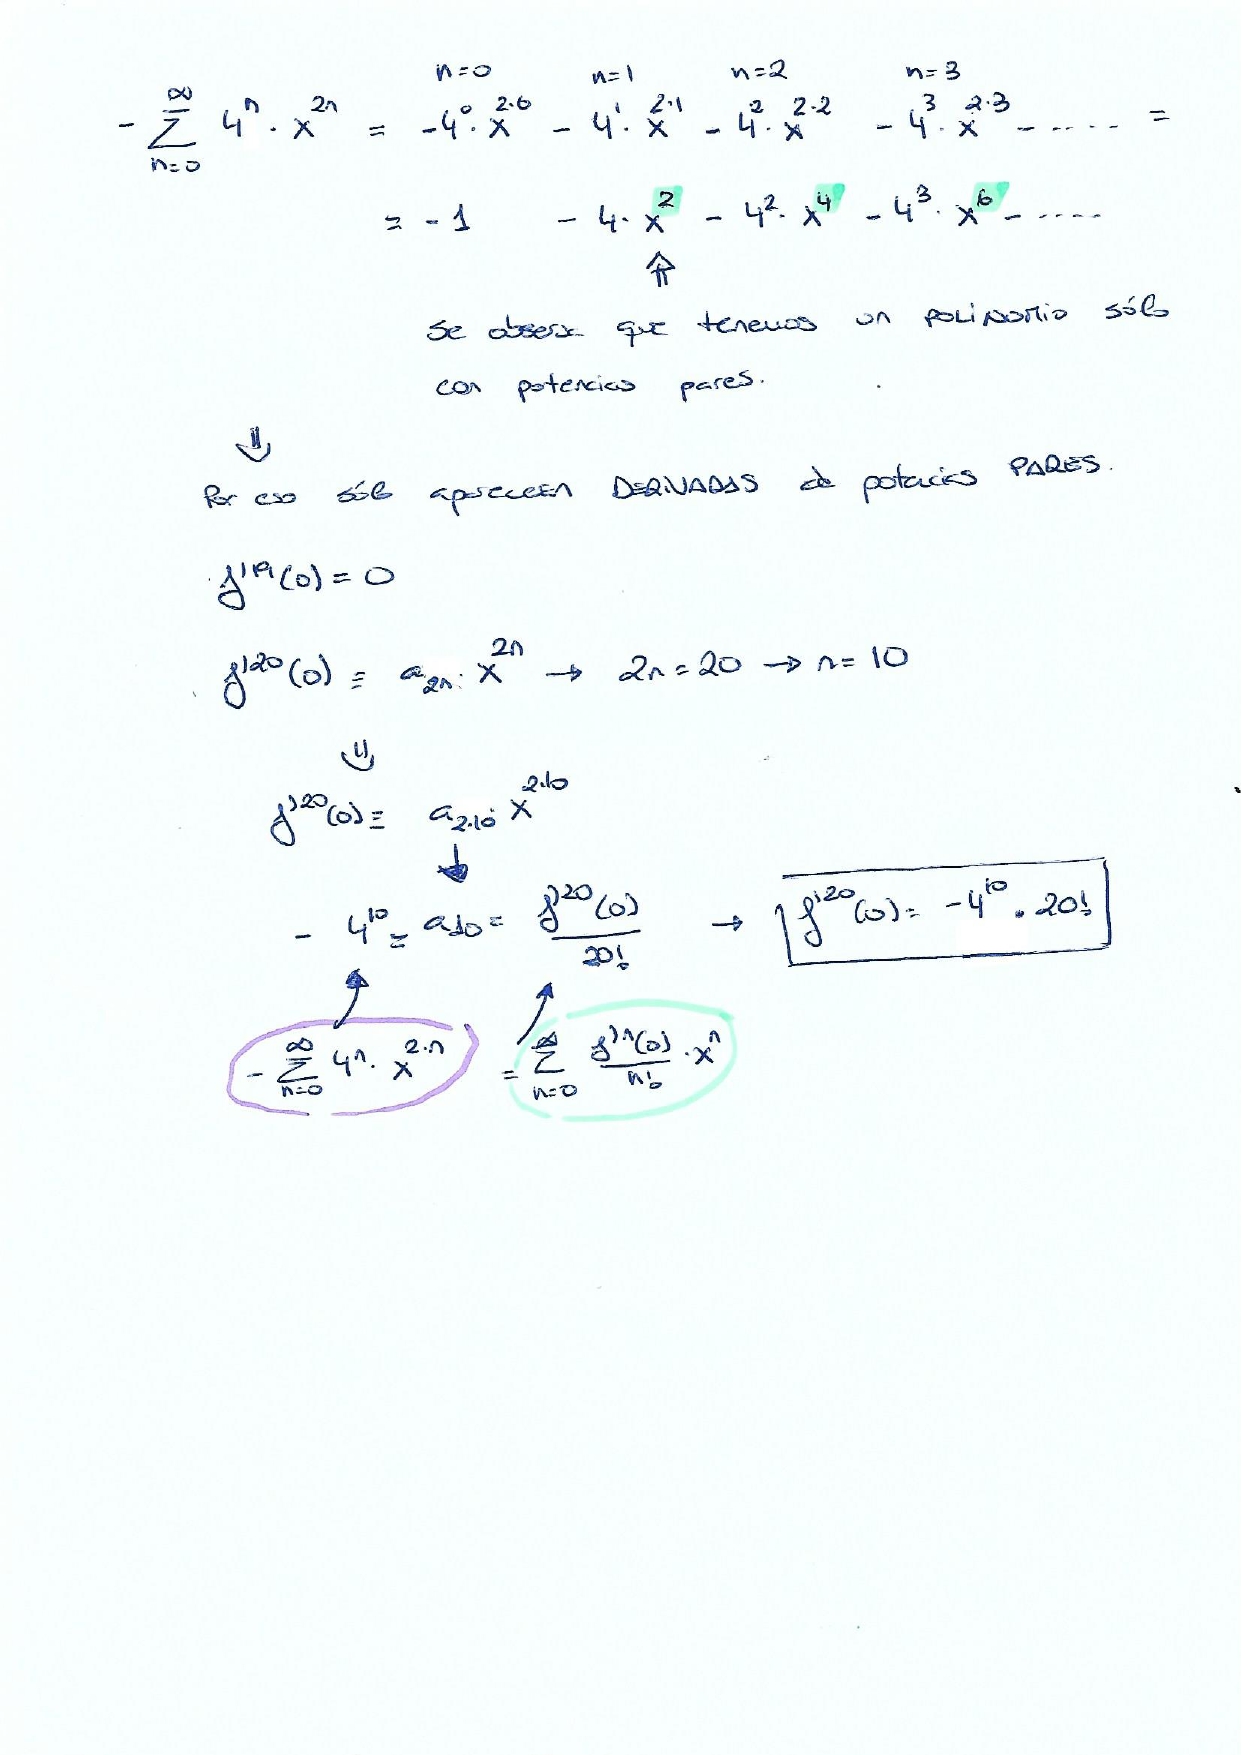 n=0 n=1 n=2 n=3
- ∞ Σ n=0 4ⁿ · x²ⁿ = -4⁰ · x^2·0 - 4¹ · x^2·1 - 4² · x^2·2 - 4³ · x^2·3 - ..... =
= -1 - 4 · x² - 4² · x⁴ - 4³ · x⁶ - .....
Se observa que tenemos un POLINOMIO sólo
con potencias pares.
⇓
Por eso sólo aparecen DERIVADAS de potencias PARES.
f^)19(0) = 0
f^)20(0) ≡ a_2n · x^2n → 2n = 20 → n = 10
⇓
f^)20(0) ≡ a_2·10 · x^2·10
↓
- 4^10 = a_10 = f^)20(0)/20! → f^)20(0) = -4^10 · 20!
- ∞ Σ n=0 4ⁿ · x^2·n = ∞ Σ n=0 f^)n(0)/n! · xⁿ